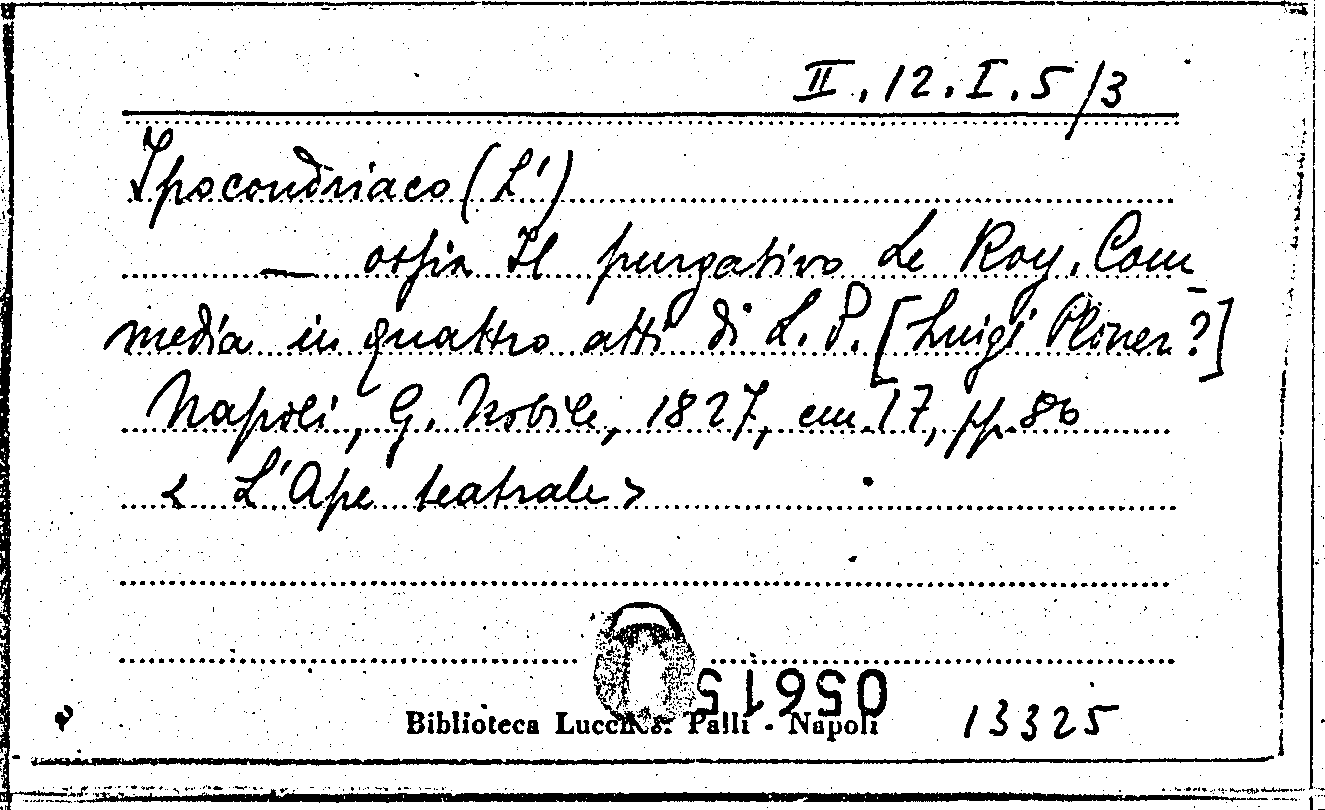 II.12.I.5/3
Ipocondriaco (L')
— ossia Il purgativo Le Roy. Com-
media in quattro atti di L. P. [Luigi Ploner?]
Napoli, G. Nobile, 1827, cm. 17, pp. 86
< L'Ape teatrale >
05615
Biblioteca Lucchesi Palli - Napoli 13325